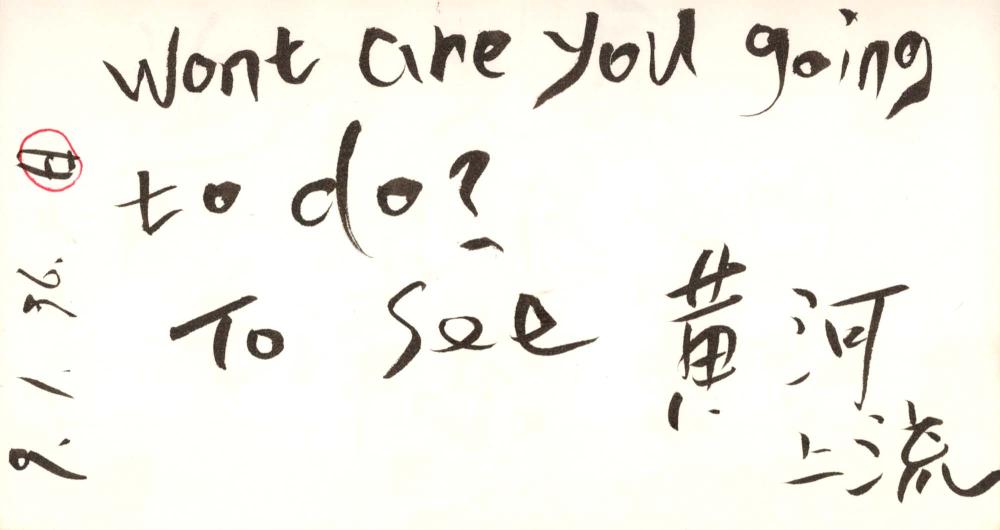 Wont are you going
to do?
To see 黄河
上流
9. 1. 26.